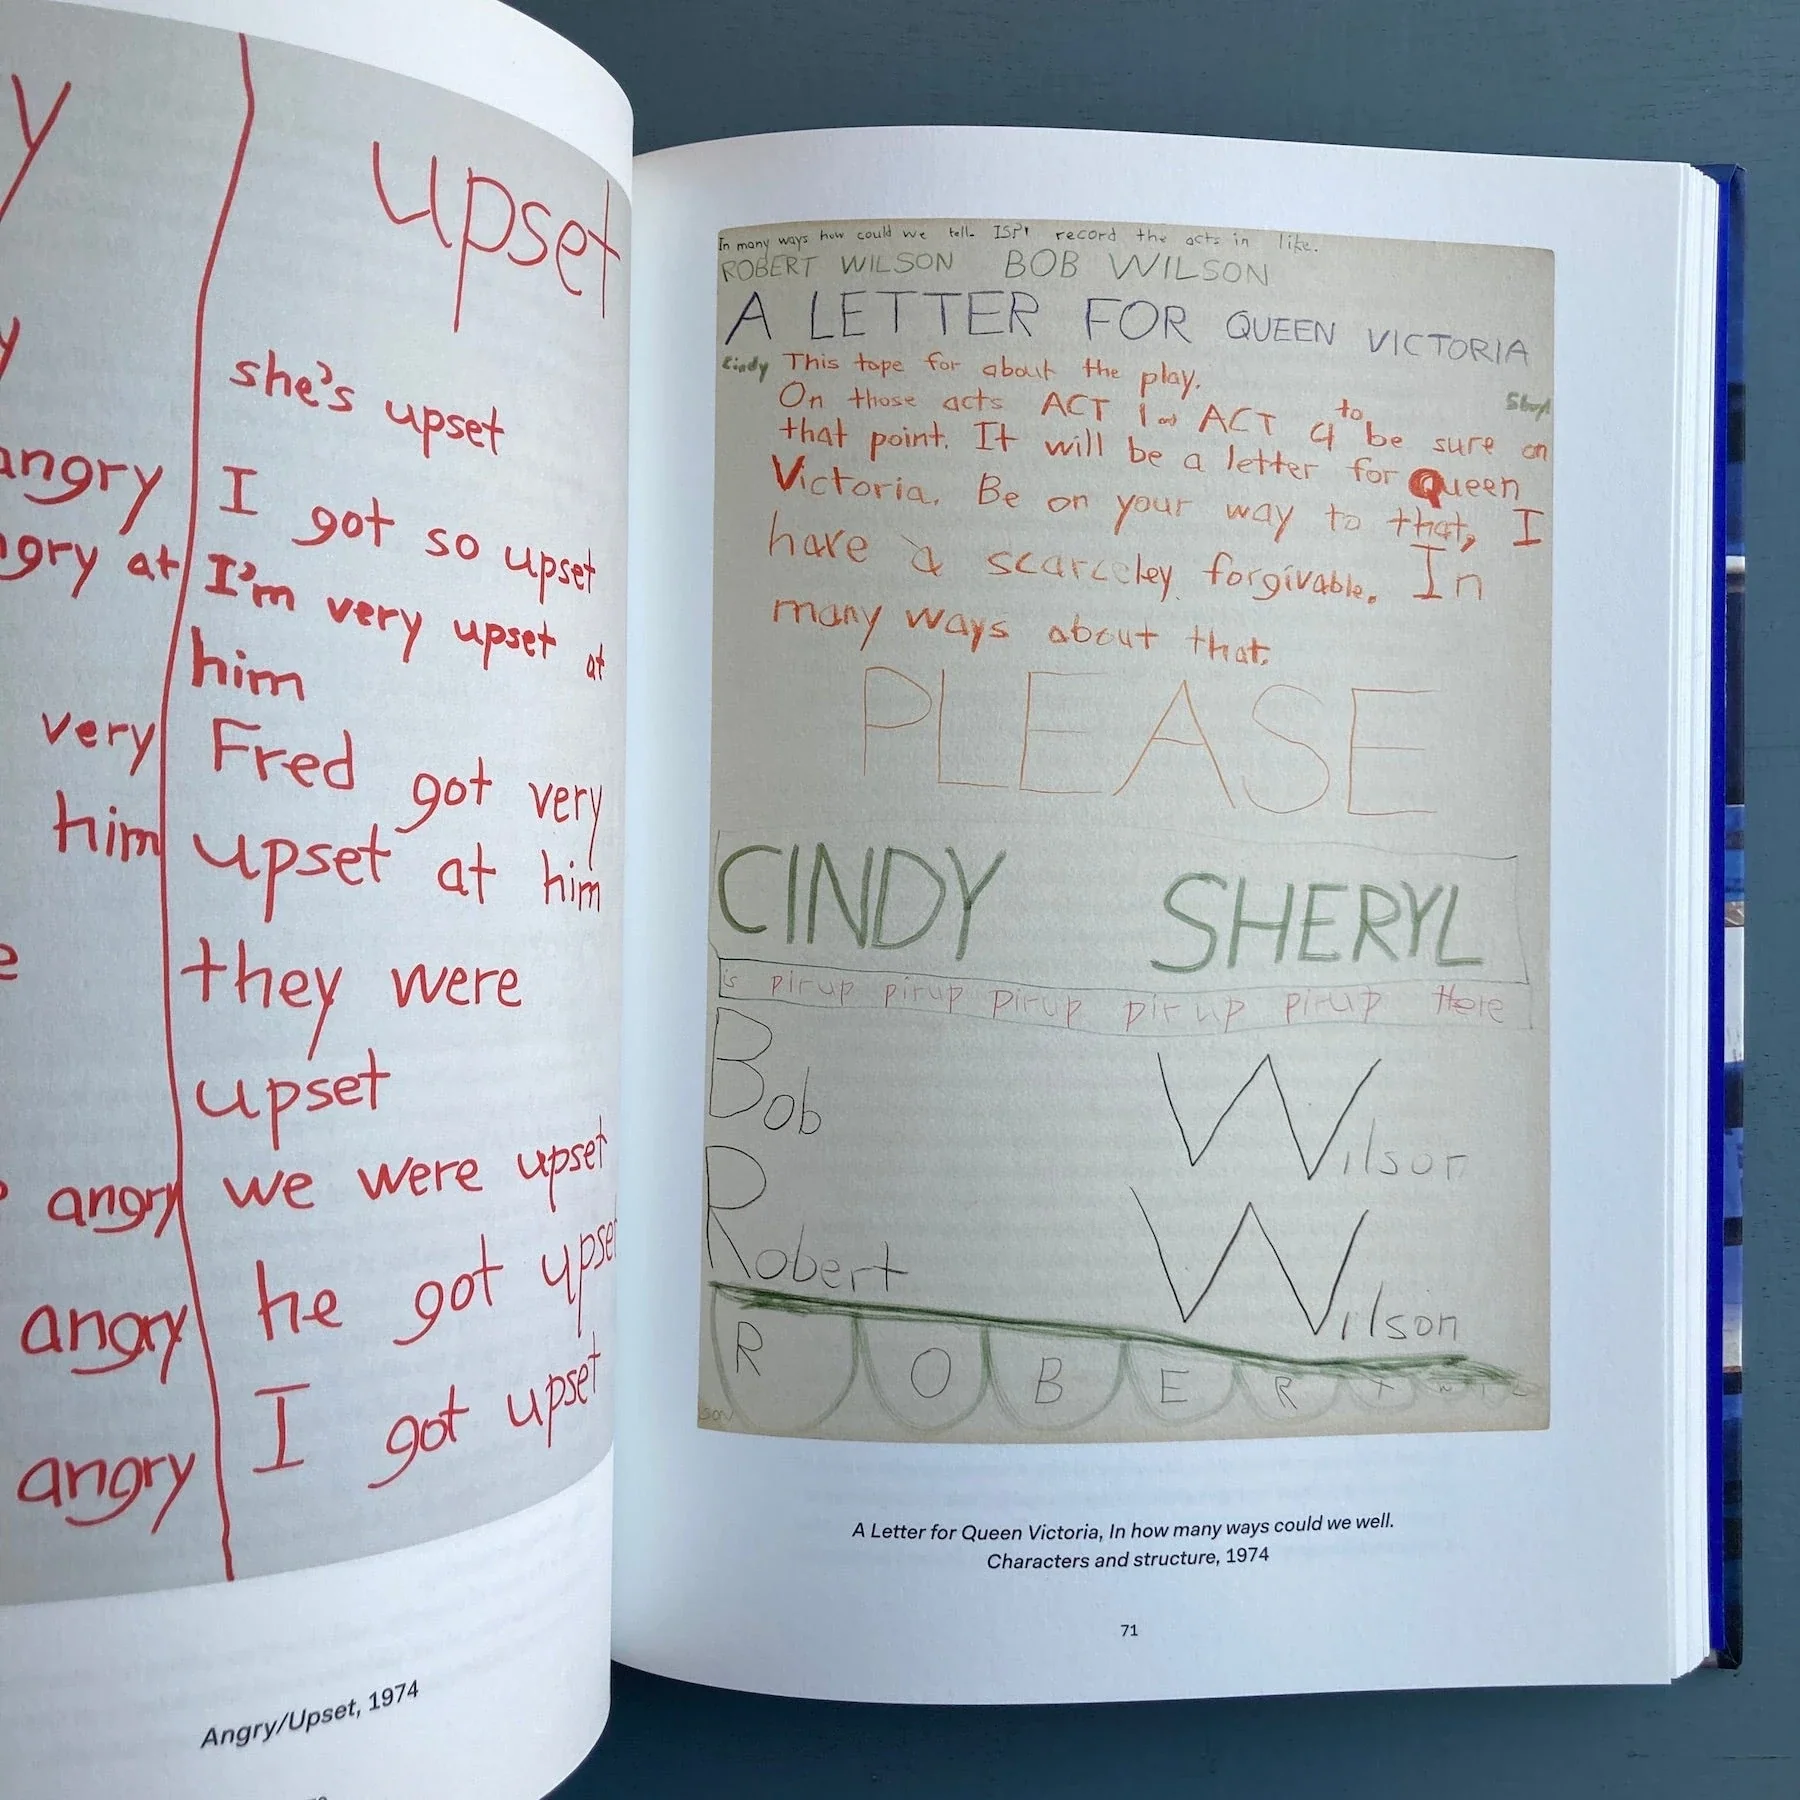 y
y
angry
ngry at
very
him
e
angry
angry
angry
upset
she's upset
I got so upset
I'm very upset at
him
Fred got very
upset at him
they were
upset
we were upset
he got upset
I got upset
Angry/Upset, 1974
In many ways how could we tell. record the acts in like.
ROBERT WILSON BOB WILSON
A LETTER FOR QUEEN VICTORIA
Cindy This tape for about the play.
Sheryl
On those acts ACT 1 ACT 4 to be sure on
that point. It will be a letter for Queen
Victoria. Be on your way to that, I
have a scarceley forgivable. In
many ways about that.
PLEASE
CINDY SHERYL
is pirup pirup pirup pirup pirup Here
Bob Wilson
Robert Wilson
R O B E R T W I L
SON
A Letter for Queen Victoria, In how many ways could we well.
Characters and structure, 1974
71